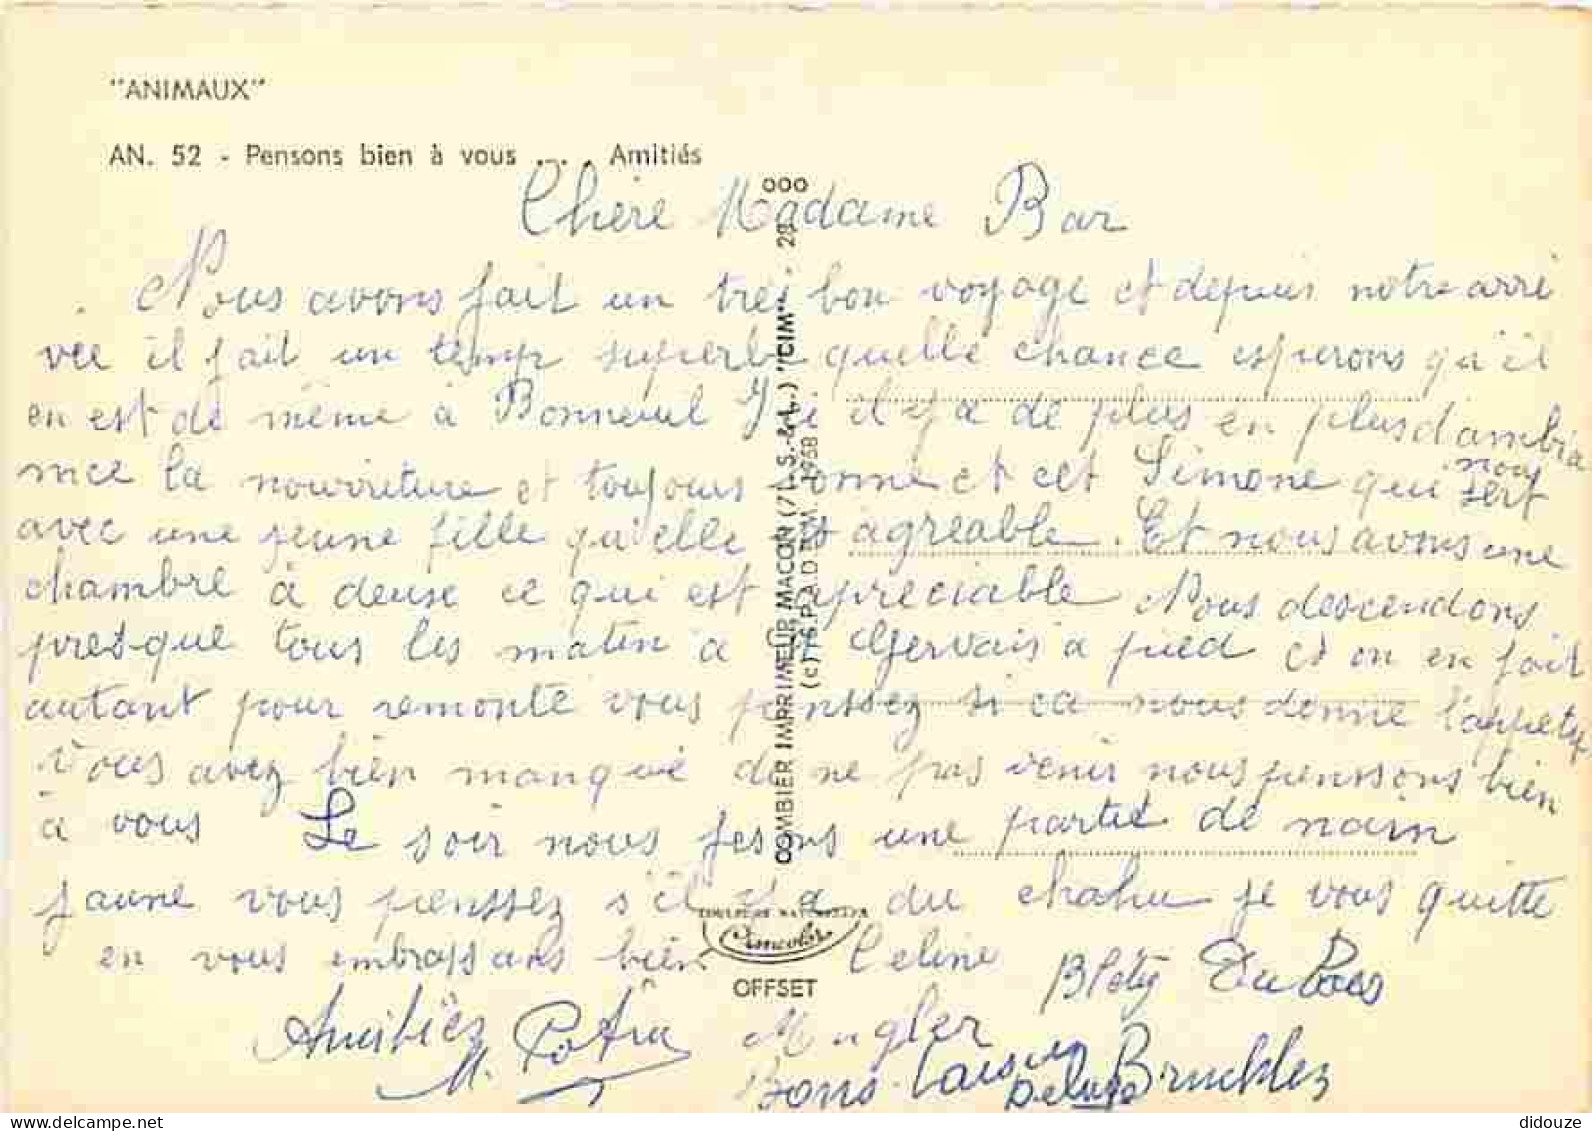 "ANIMAUX"
AN. 52 - Pensons bien à vous . . . Amitiés
Chère Madame Bar
Nous avons fait un tres bon voyage et depuis notre arri
vée il fait un temp superbe quelle chance esperons qu'il
en est de même à Bonneuil Ici il y a de plus en plus d'ambia
nce la nourriture et toujours bonne et cet Simone qui nous sert
avec une jeune fille qu'elle est agréable. Et nous avons une
chambre à deuse ce qui est apreciable Nous descendons
presque tous les matin a St Gervais a pied et on en fait
autant pour remonté vous penssez si ca nous donne l'appetit
Vous avez bien manqué de ne pas venir nous penssons bien
à vous Le soir nous fesons une partie de nain
jaune vous penssez s'il y a du chahu je vous quitte
en vous embrassans bien Celine
Amitiés
M.
Bons
COMBIER IMPRIMEUR MACON (71 S.-&-L.) "CIM"
(c) S.P.A.D.E.M. 1968
COULEURS NATURELLES
Cimcolor
OFFSET
delcampe.net
didouze